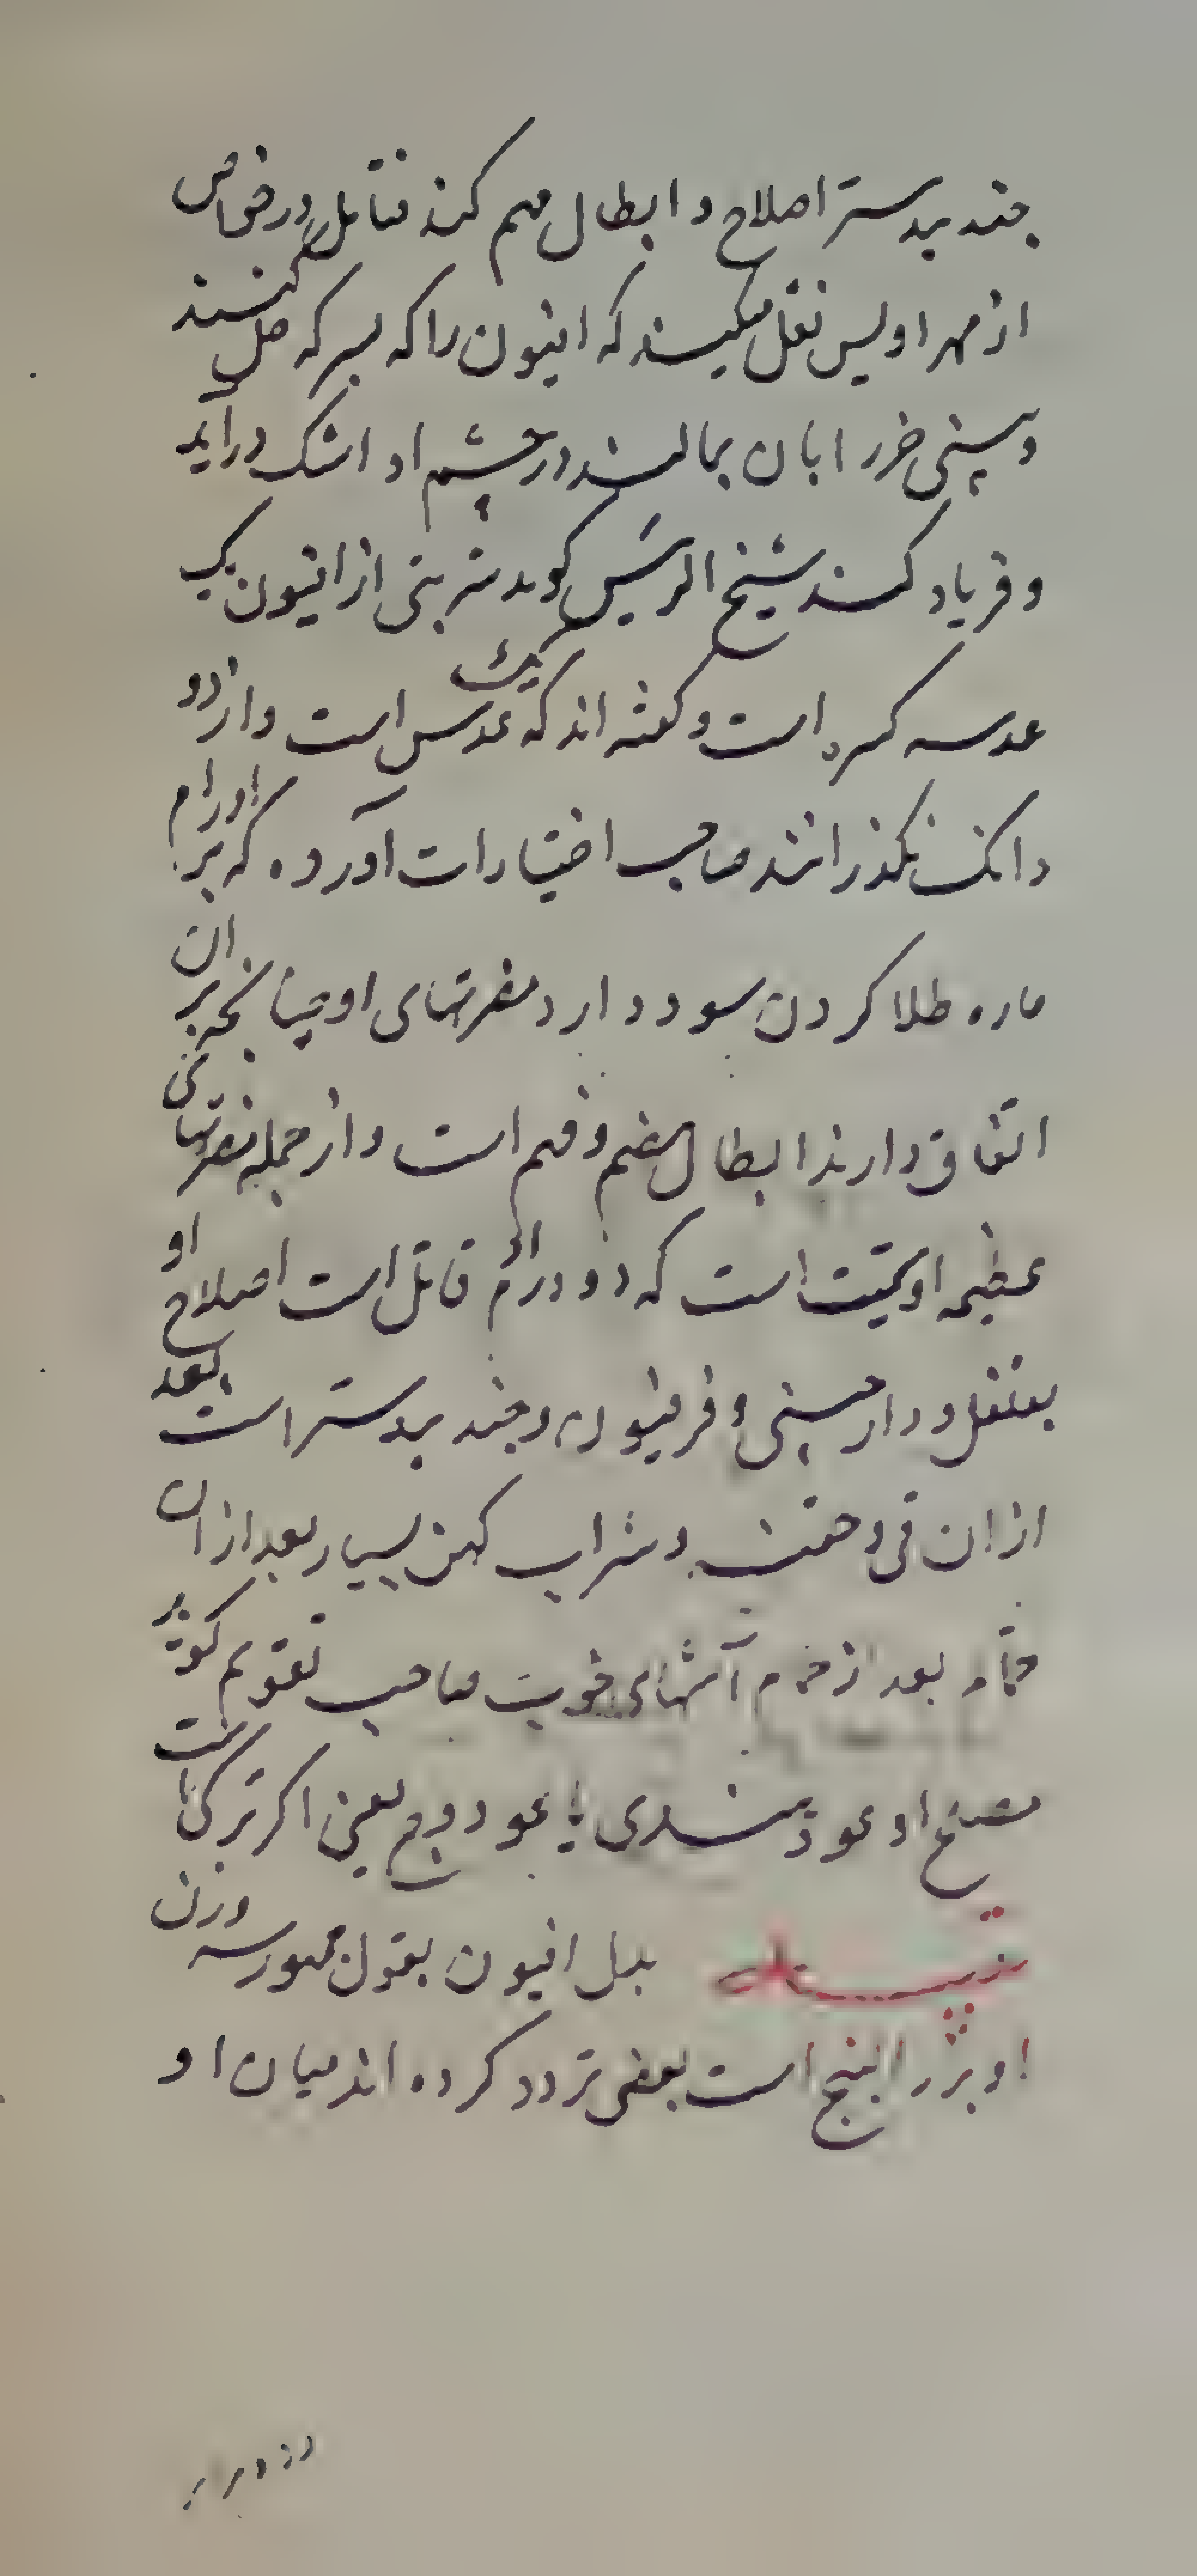 جند بیدستر اصلاح و ابطال هم کند قاتل در خواص
از مهراولیس نقل میکنند که افیون را که بسرکه حل کنند
و ببینی خر را بان بمالند در چشم او اشک درآید
و فریاد کند شیخ الرئیس کوید شربتی از افیون یک
عدسه است و کفته اند که یک عدس است و از دو
دانک نکذرانند صاحب اختیارات آورده که بر اورام
حاره طلا کردن سود دارد مضرتهای او چنانچه بران
اتفاق دارند ابطال هضم و فهم است و از جمله مضرتهای
عظیمه او است که دو درم قاتل است اصلاح او
بفلفل و دارچینی و فرفیون و جند بیدستر است بعد
ازان قی و حقنه و شراب کهن بسیار بعد ازان
حمام بعد از حمام آشهای صاحب تقویم کوید
مصلح او عود هندی یا عود وج یعنی اکر ترکی است
بدل افیون بقول جمهور سه وزن
او بزر البنج است بعضی تردد کرده اند میان او